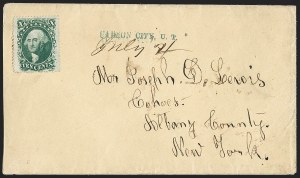 TEN CENTS
CARSON CITY, U. T.
July 21
Mr Joseph D. Lewis
Cohoes.
Albany County.
New York.